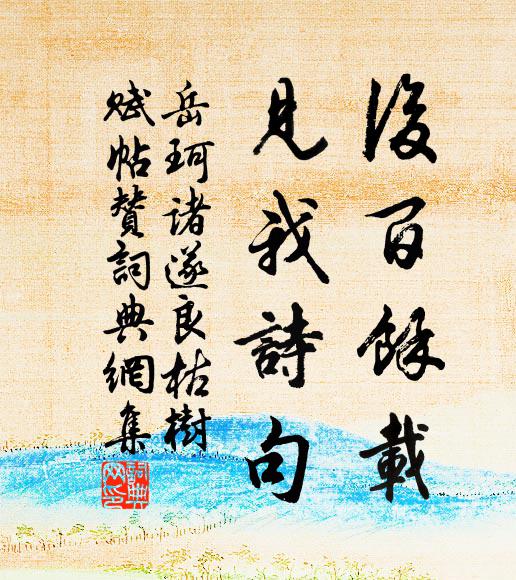 後百餘載
見我詩句
岳珂諸遂良枯樹
賦帖贊詞典網集